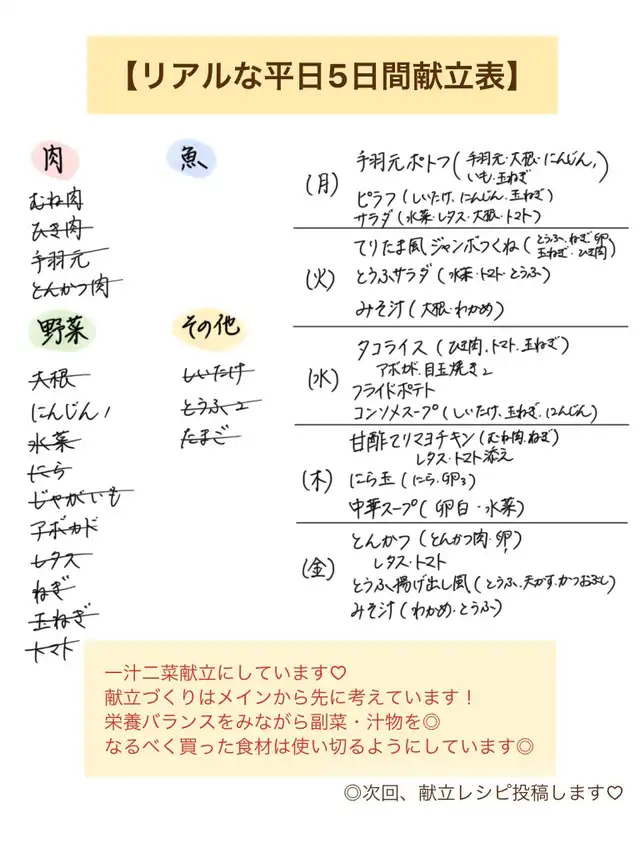 【リアルな平日5日間献立表】
肉
むね肉
ひき肉
手羽元
とんかつ肉
魚
野菜
大根
にんじん 1
水菜
にら
じゃがいも
アボカド
レタス
ねぎ
玉ねぎ
トマト
その他
しいたけ
とうふ 2
たまご
(月)
手羽元ポトフ(手羽元・大根・にんじん、
いも・玉ねぎ)
ピラフ(しいたけ、にんじん、玉ねぎ)
サラダ(水菜・レタス・大根・トマト)
(火)
てりたま風ジャンボつくね(とうふ、ねぎ 卵
玉ねぎ・ひき肉)
とうふサラダ(水菜・トマト・とうふ)
みそ汁(大根・わかめ)
(水)
タコライス(ひき肉、トマト、玉ねぎ)
アボカド、目玉焼き2
フライドポテト
コンソメスープ(しいたけ、玉ねぎ、にんじん)
(木)
甘酢てりマヨチキン(むね肉、ねぎ)
レタス・トマト添え
にら玉(にら・卵3)
中華スープ(卵白・水菜)
(金)
とんかつ(とんかつ肉・卵1)
レタス・トマト
とうふ揚げ出し風(とうふ、天かす、かつおぶし)
みそ汁(わかめ・とうふ)
一汁二菜献立にしています♡
献立づくりはメインから先に考えています！
栄養バランスをみながら副菜・汁物を◎
なるべく買った食材は使い切るようにしています◎
◎次回、献立レシピ投稿します♡